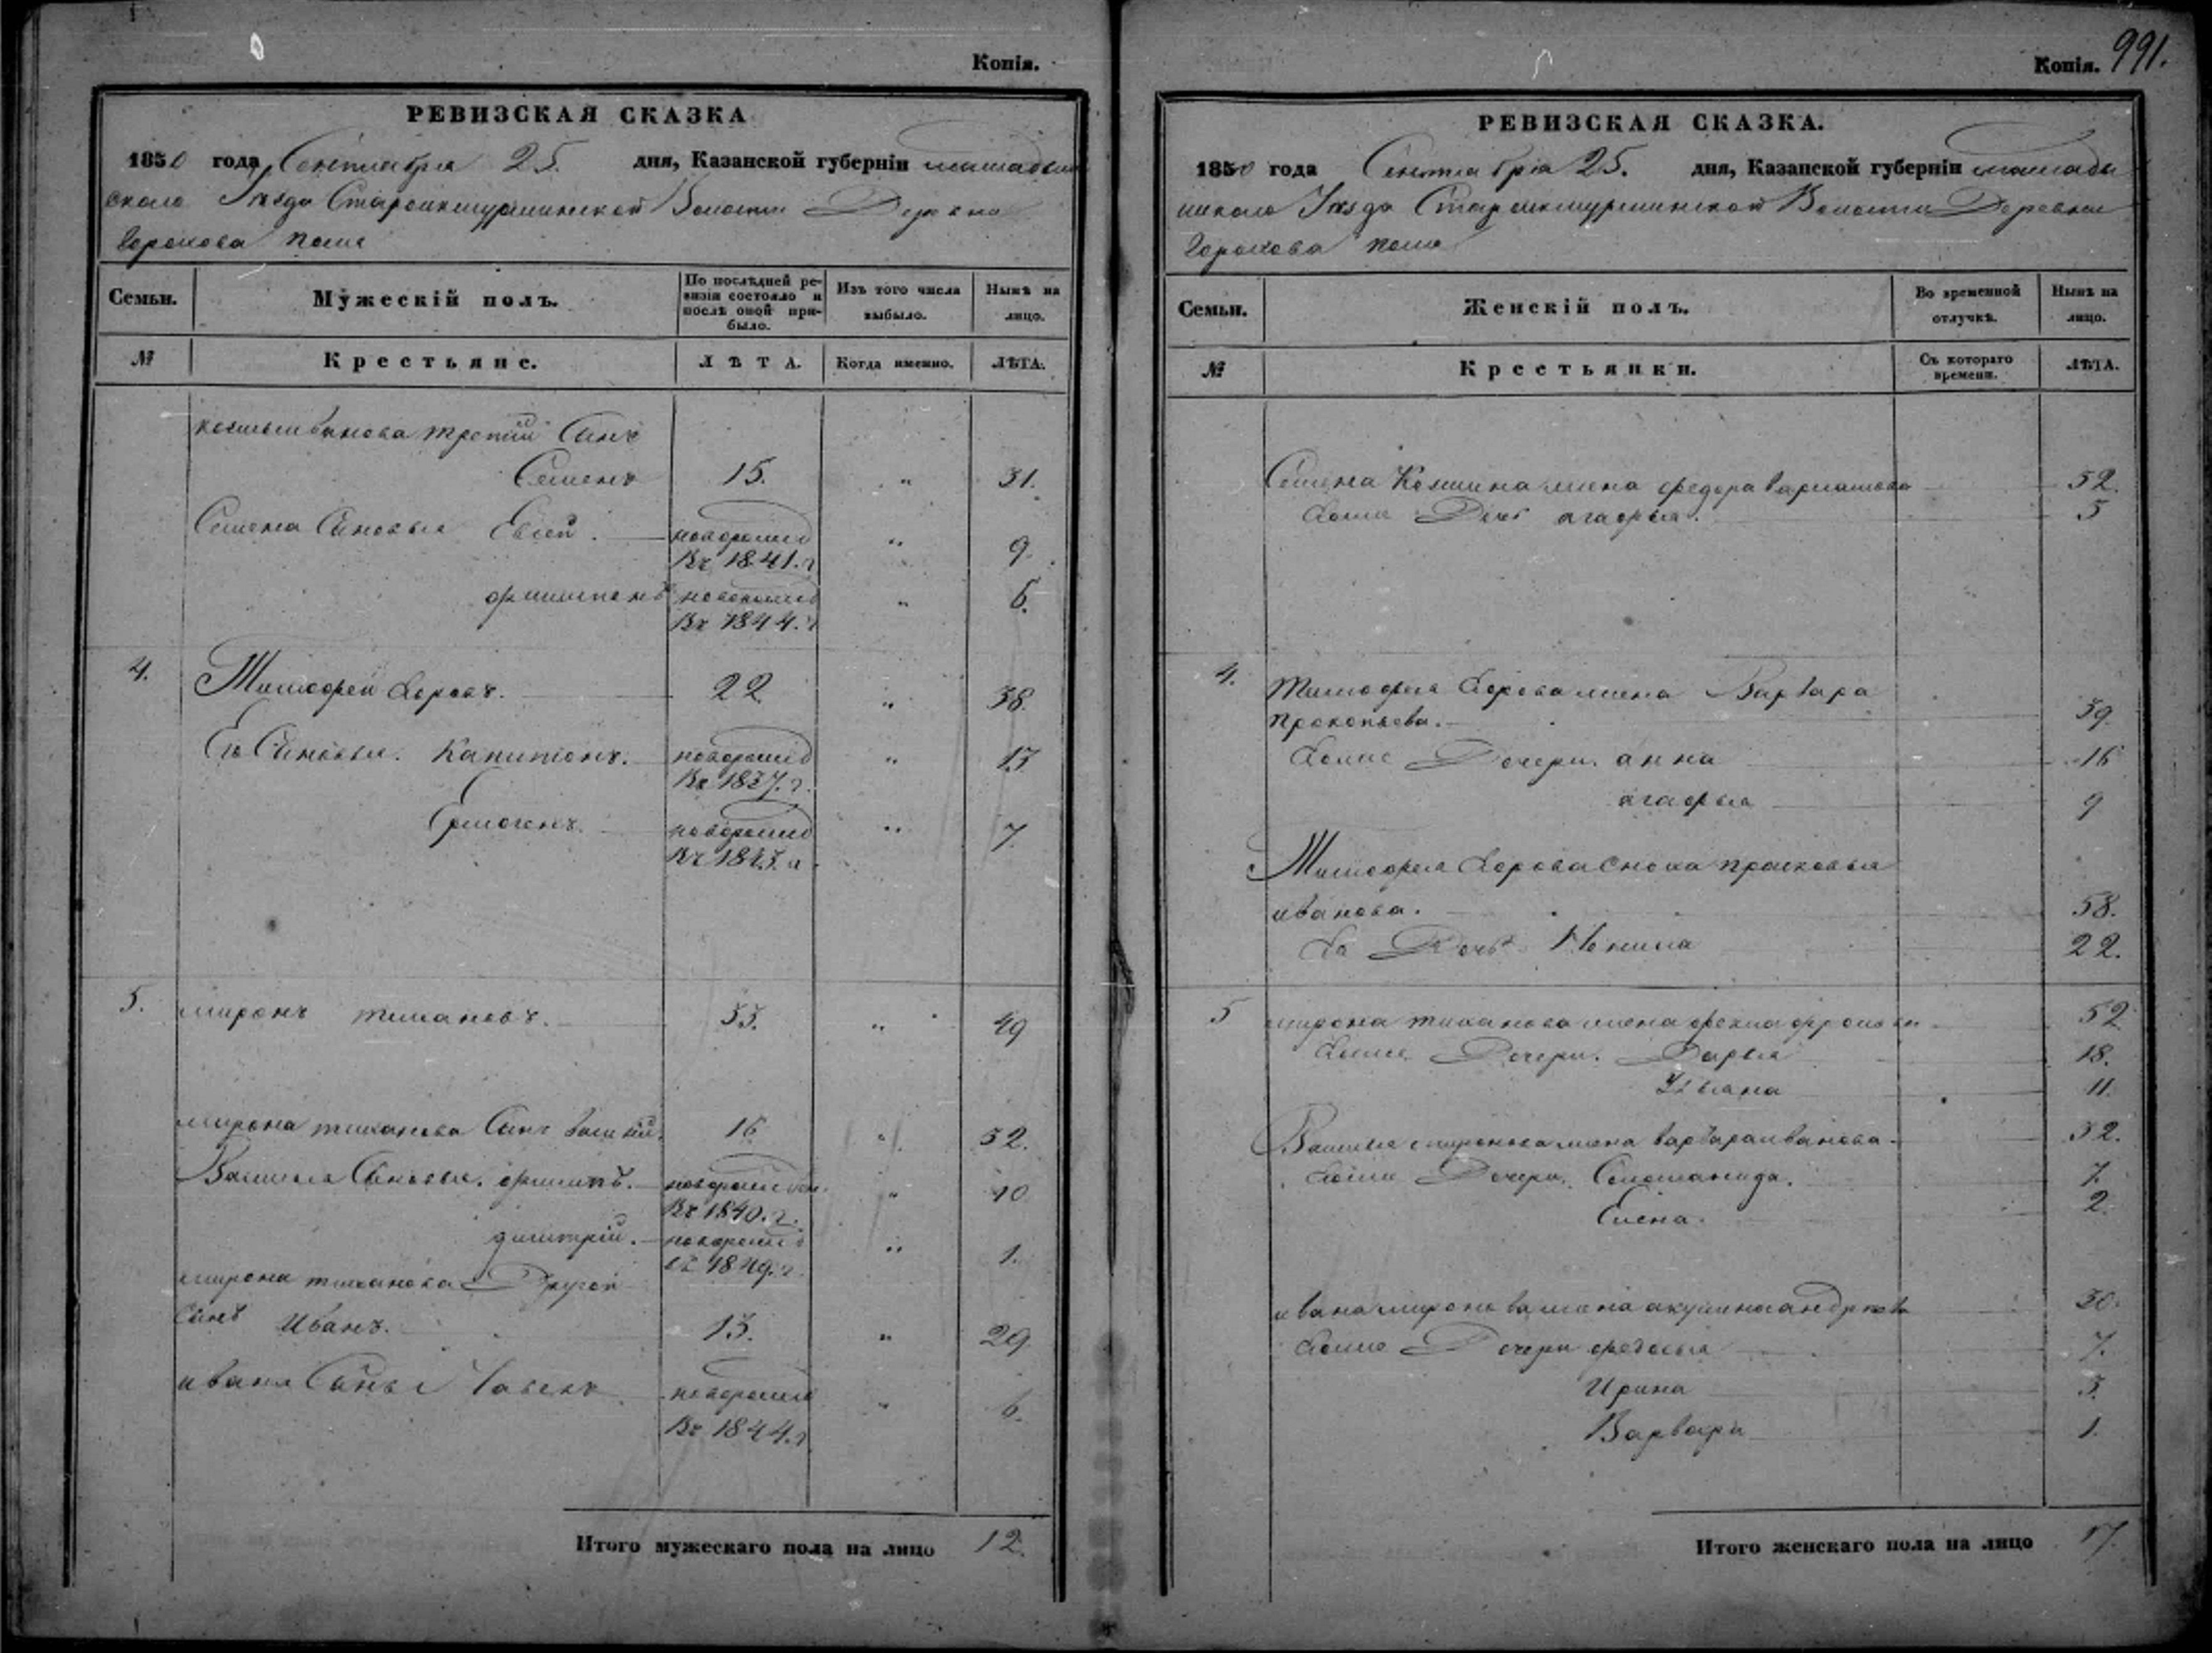 Копія.
РЕВИЗСКАЯ СКАЗКА
1850 года Сентября 25. дня, Казанской губерніи мамады
скаго Уѣзда Староикшурминской Волости Деревни
Горохова поля
Семьи. Мужескій полъ. По послѣдней ревизіи состояло и послѣ оной прибыло. Изъ того числа выбыло. Нынѣ на лицо.
№ Крестьяне. ЛѢТА. Когда именно. ЛѢТА.
третий Сынъ
Семенъ 15. " 31.
Семена Сыновья Евсей. новорожд " 9.
Въ 1841. г
филипепъ новорожд " 6.
Въ 1844. г
4. Тимофей Егоровъ. 22 " 38.
Его Сыновья. Капитонъ. новорожд " 13
Въ 1837. г.
Ермогенъ. новорожд " 7.
Въ 1843. г.
5. миронъ тихановъ. 33. " 49
мирона тиханова Сынъ василий. 16 " 32.
Василья Сыновья. филипъ. новорожден. " 10
Въ 1840. г.
димитрій. новорожд " 1.
въ 1849. г.
мирона тиханова Другой
Сынъ Иванъ. 13. " 29
ивана Сынъ новорожд " 6.
Въ 1844. г
Итого мужескаго пола на лицо 12.
Копія. 991.
РЕВИЗСКАЯ СКАЗКА.
1850 года Сентября 25. дня, Казанской губерніи мамады
шскаго Уѣзда Староикшурминской Волости Деревни
Горохова поля
Семьи. Женскій полъ. Во временной отлучкѣ. Нынѣ на лицо.
№ Крестьянки. Съ котораго времени. ЛѢТА.
Семена Козмина жена федора 32.
Еъ Дочь агафья. 5
4. Тимофея Егорова жена Варвара
прокопьева. 39.
Дочери. анна 16
агафья 9
Тимофея Егорова сноха прасковья
иванова. 58.
Ея Дочь 22.
5 мирона тиханова жена фекла 52
Дочери. Дарья 18.
Ульяна 11.
Василья миронова жена варвара иванова. 32.
Дочери. Соломанида. 7.
Елена. 2.
ивана миронова жена акулина андреева 30.
Дочери федосья 7.
Ирина 3.
Варвара 1.
Итого женскаго пола на лицо 17.